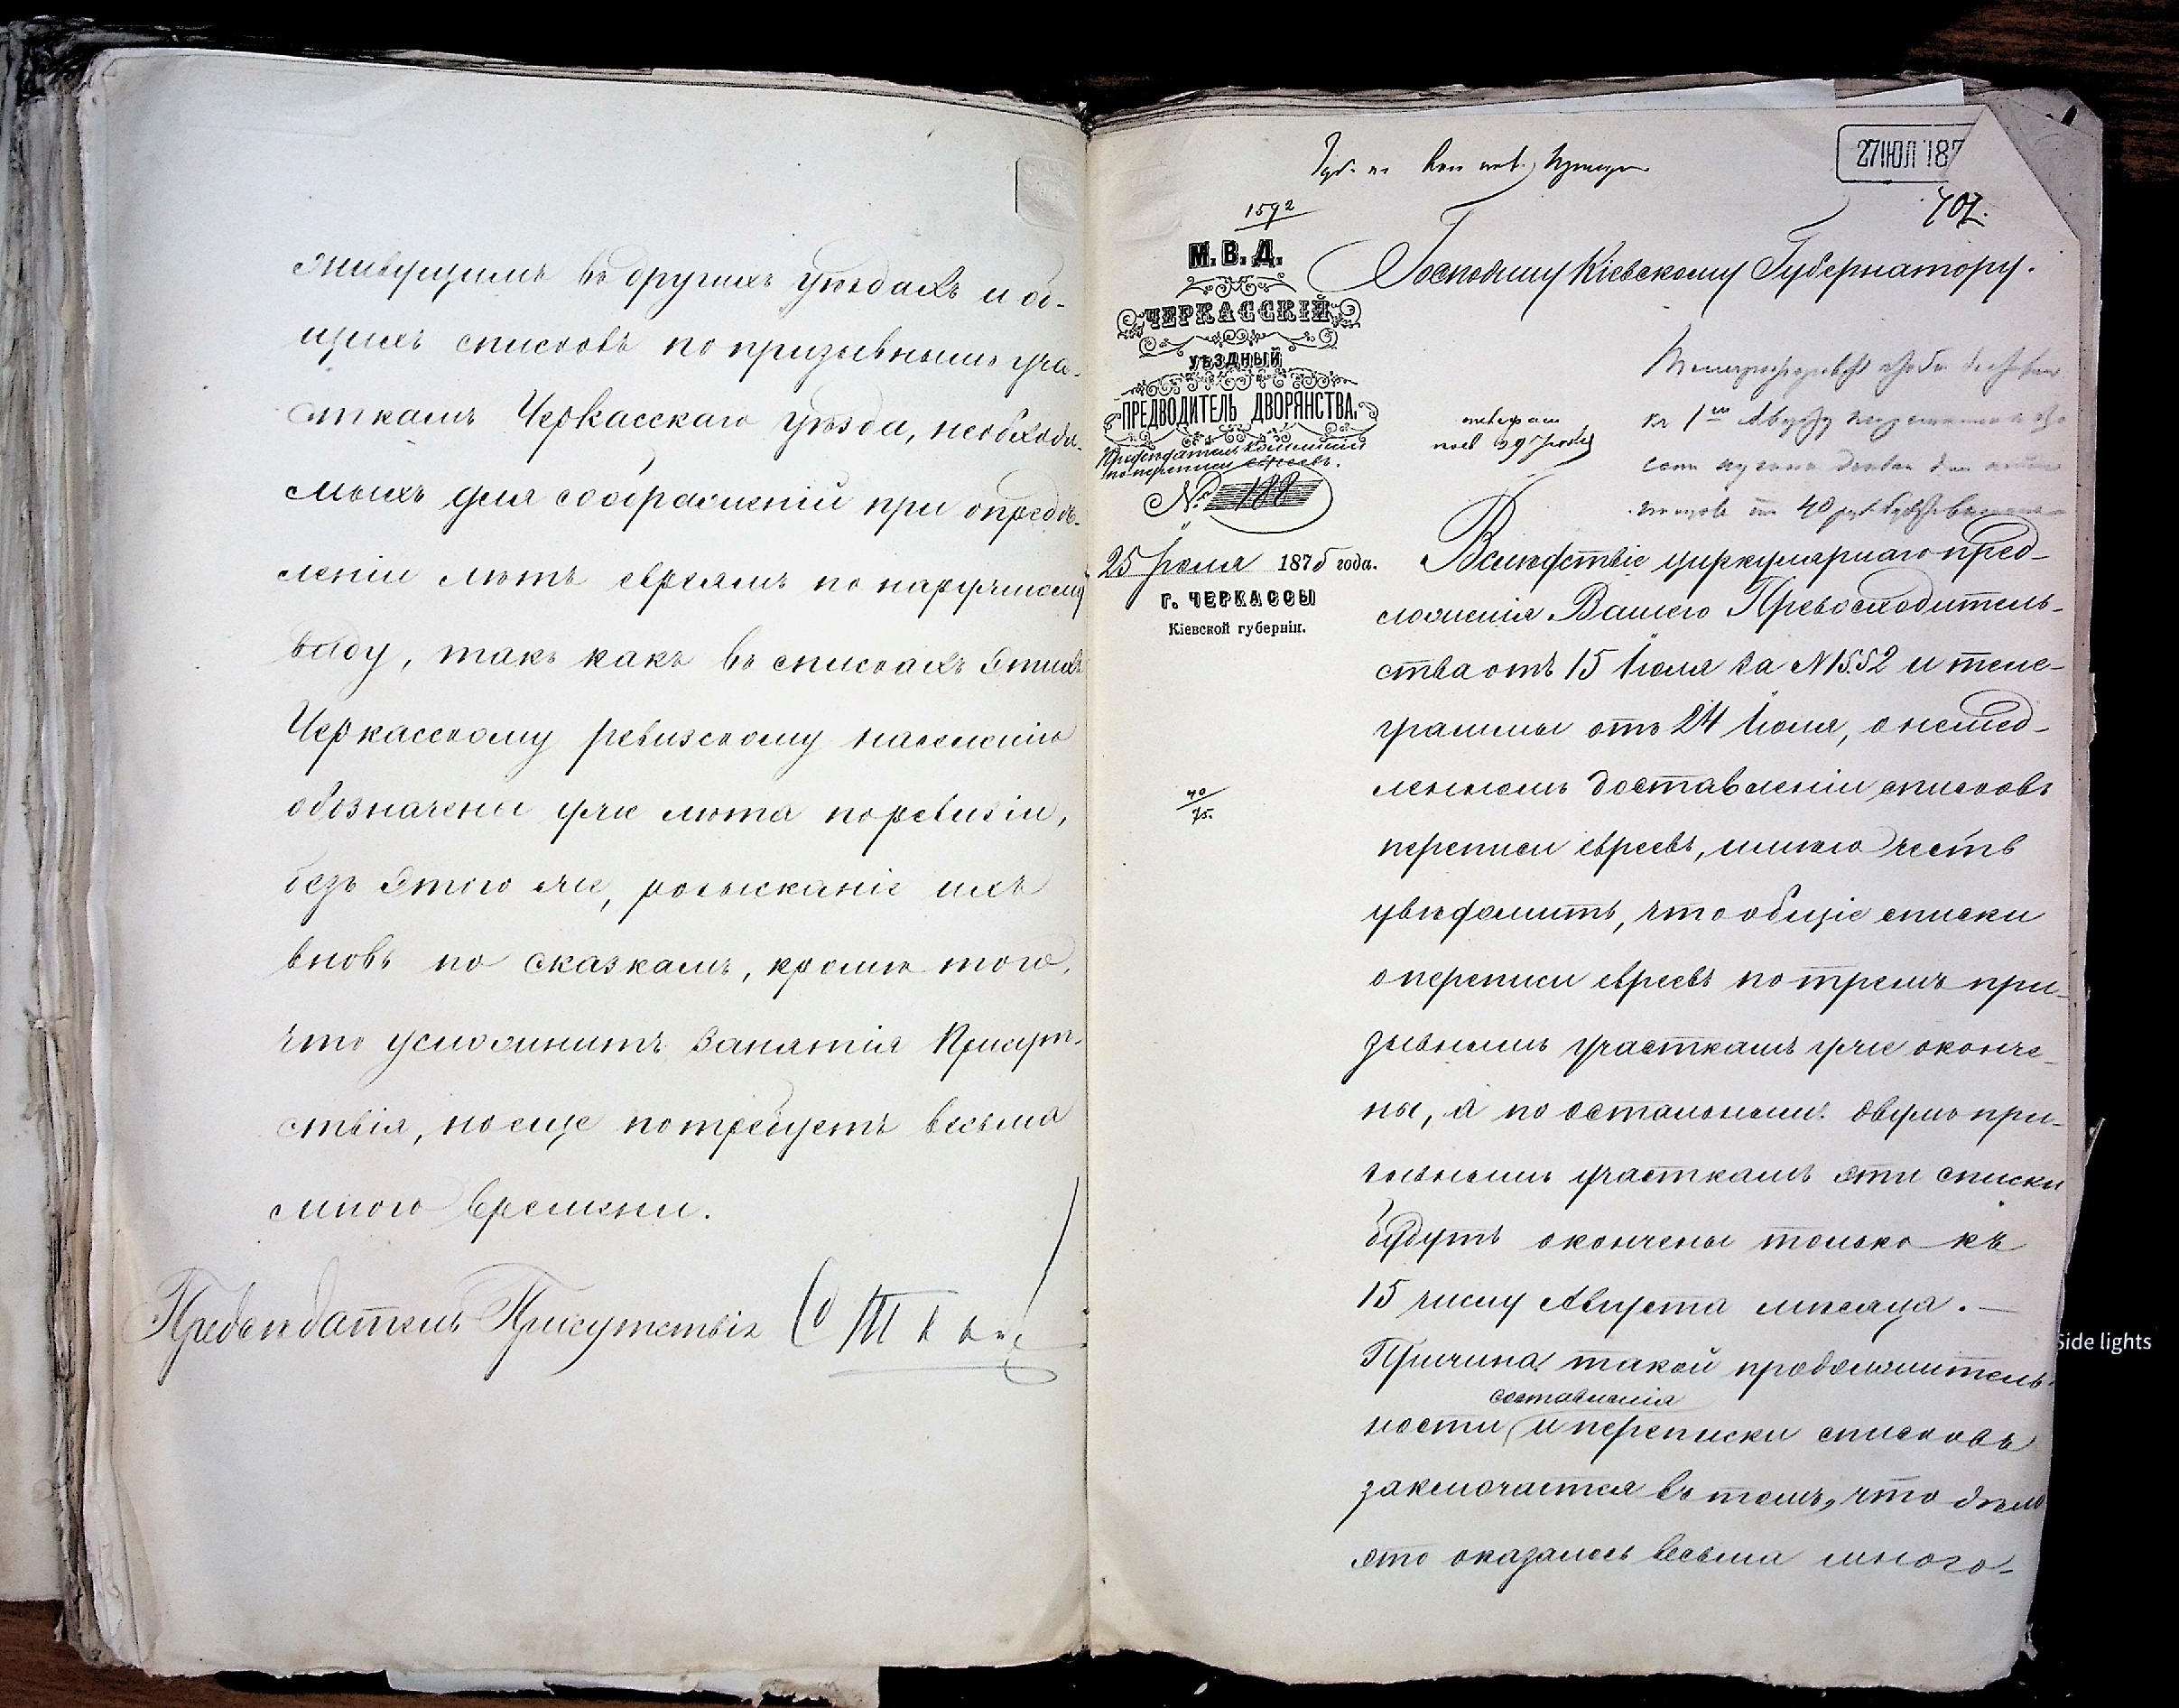 живущимъ въ другихъ уѣздахъ и об-
щихъ списковъ по призывнымъ уча-
сткамъ Черкасскаго уѣзда, необходи-
мыхъ для соображеній при опредѣ-
леніи лѣтъ евреямъ по наружному
виду, такъ какъ въ спискахъ этихъ
Черкасскому ревизскому населенію
обозначены уже лѣта по ревизіи,
безъ этого же, розысканіе ихъ
вновь по сказкамъ, кромѣ того,
что усложнитъ занятія Присут-
ствія, но еще потребуетъ весьма
много времени.
Предсѣдатель Присутствія
27 ІЮЛ 187
707.
1592
М. В. Д.
ЧЕРКАССКІЙ
УѢЗДНЫЙ
ПРЕДВОДИТЕЛЬ ДВОРЯНСТВА.
Предсѣдатель комиссіи
по переписи евреевъ.
№ 188
25 Іюля 1875 года.
Г. ЧЕРКАССЫ
Кіевской губерніи.
40/75.
Господину Кіевскому Губернатору.
Вслѣдствіе циркулярнаго пред-
ложенія Вашего Превосходитель-
ства отъ 15 Іюля за №1552 и теле-
граммы отъ 24 Іюля, о немед-
ленномъ доставленіи списковъ
переписи евреевъ, имѣю честь
увѣдомить, что общіе списки
о переписи евреевъ по тремъ при-
зывнымъ участкамъ уже оконче-
ны, а по остальнымъ двумъ при-
зывнымъ участкамъ эти списки
будутъ окончены только къ
15 числу Августа мѣсяца.—
Причина такой продолжитель-
составленія
ности и переписки списковъ
заключается въ томъ, что дѣло
это оказалось весьма много-
Side lights